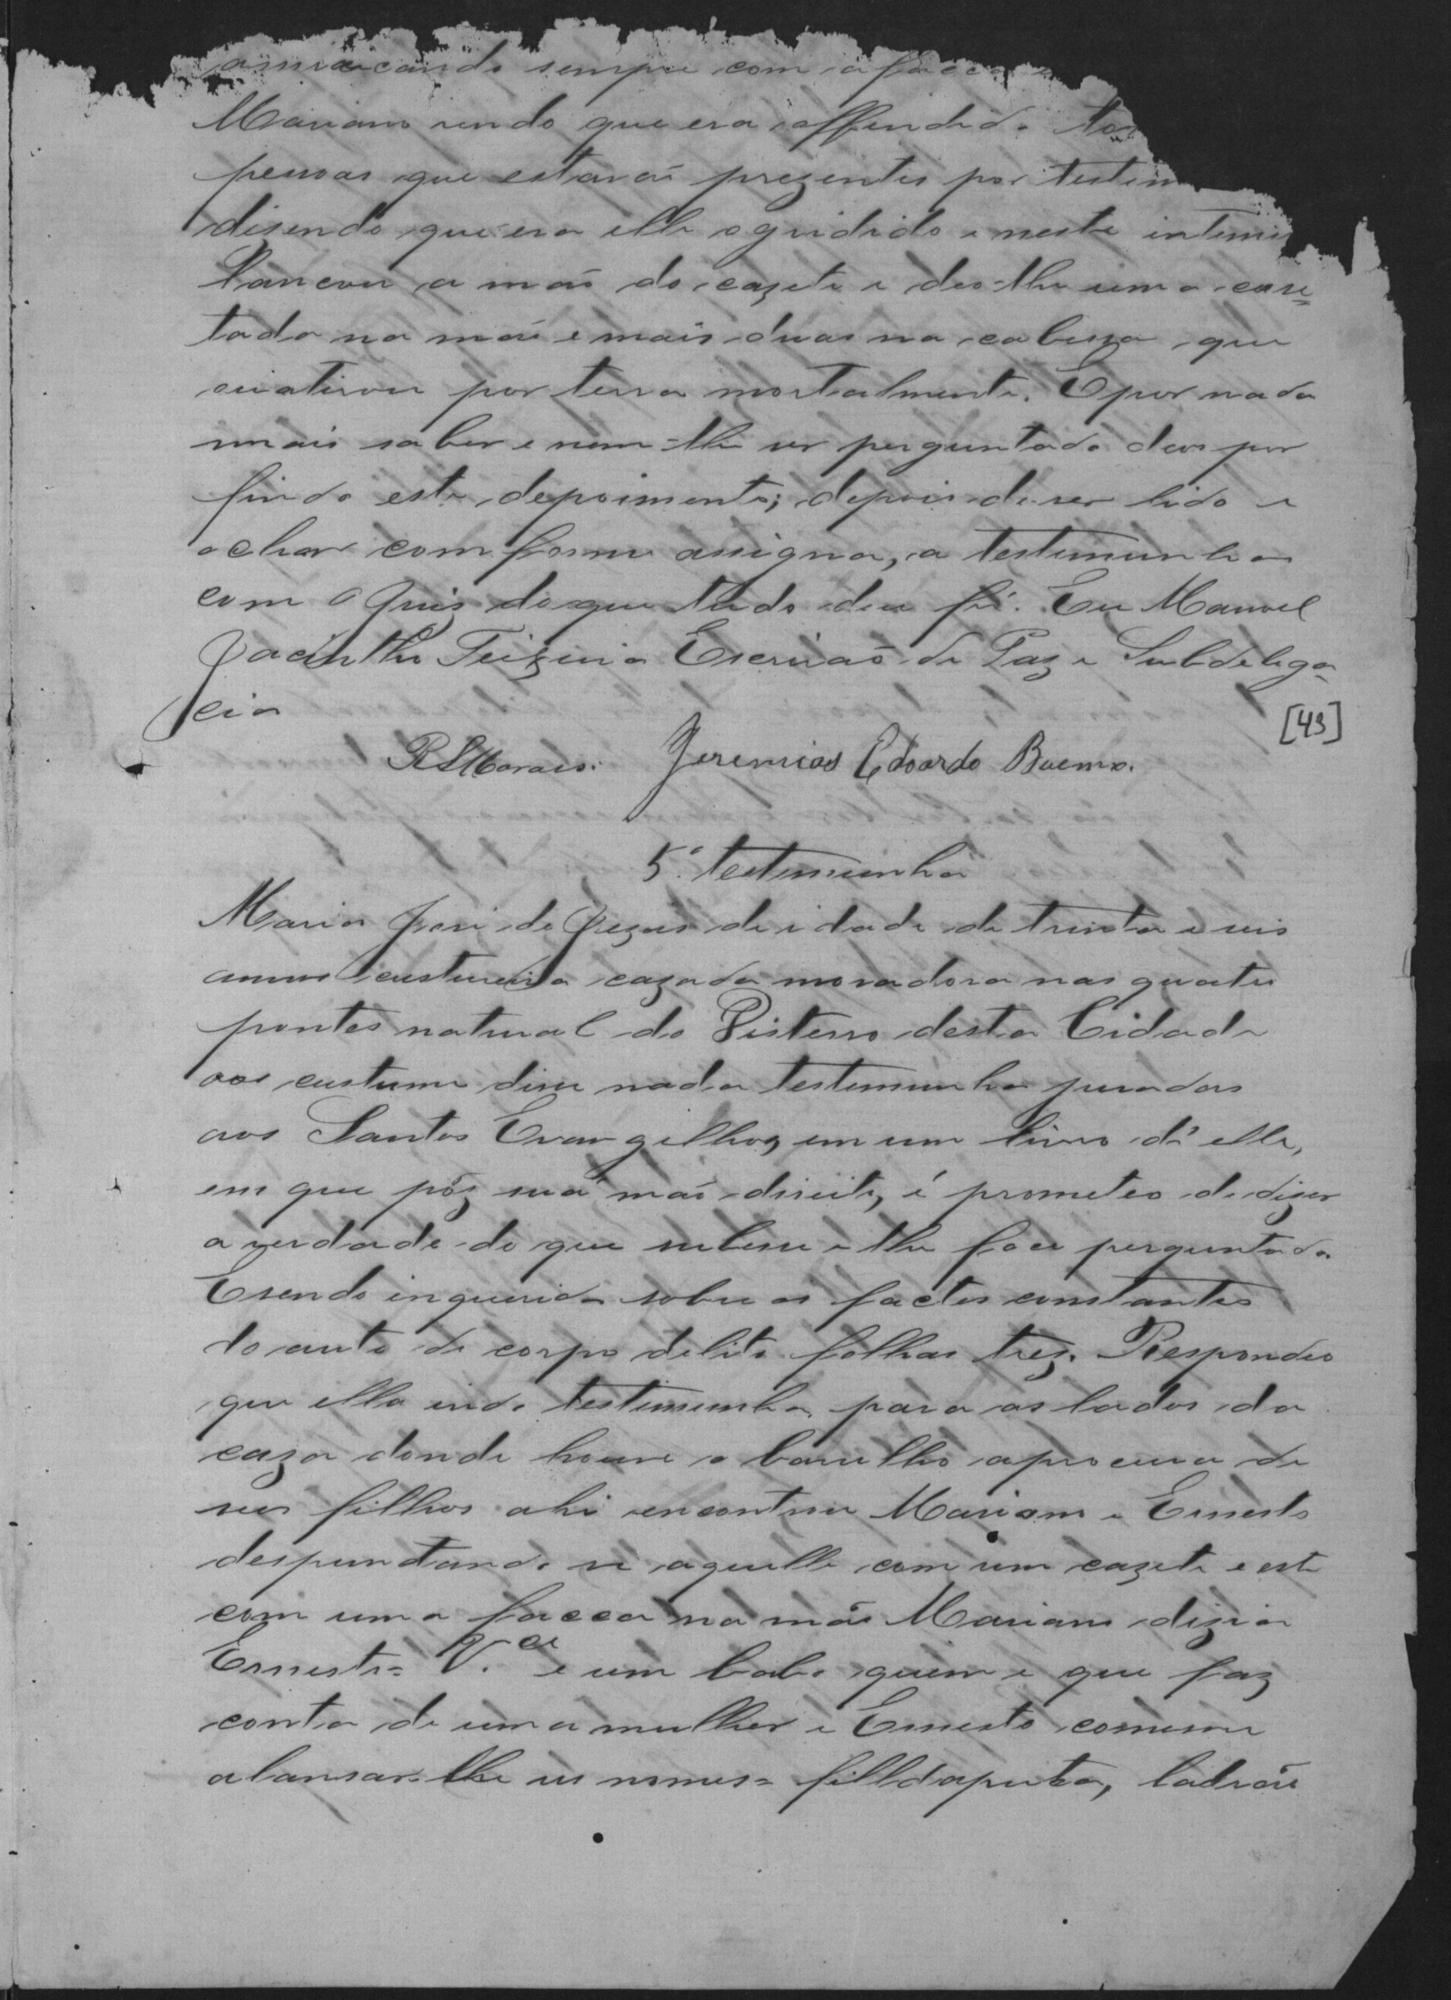 amiaçando sempre com a facca
Mariano vendo que era offendido
pessoas que estavaõ prezentes por testim
dizendo que era elle agridido e neste interm
lancou a maõ do cazete e deo-lhe uma case=
tada na maõ e mais duas na cabessa que
oiatirou por terra mortalmente. E por nada
mais saber e nem-lhe ser perguntado deos por
findo este depoimento; depois de ser lido e
achar comforme assigna, a testimunha
com o Juiz do que tudo dou fé. Eu Manoel
Jacintho Teixeira Escrivaõ de Paz e Subdelega-
cia
[43]
R S Moraes. Jeremias Edoardo Bueno.
5.ª testimunha
Maria José de Jezus de idade de trinta e seis
annos custureira cazada moradora nas quatro
pontes natural do Disterro desta Cidade
aos custume disse nada testimunha jurados
aos Santos Evangelhos, em um livro d'elle,
em que pôz sua maõ direita, é prometeo de dizer
a verdade do que subesse e lhe fosse perguntado.
E sendo inquerida sobre os factos constantes
do auto de corpo delito folhas trez. Respondeo
que ella indo testimunha para os lados da
caza donde houve o barulho aprocura de
seus filhos ahi encontrou Mariano e Ernesto
despuntando se aquelle com um cazete e este
com uma facca na maõ Mariano dizia
Ernesto = V.ce é um bobo quem e que faz
conta de uma mulher e Ernesto comessou
alansar-lhe us nomes = filldaputa, ladraõ